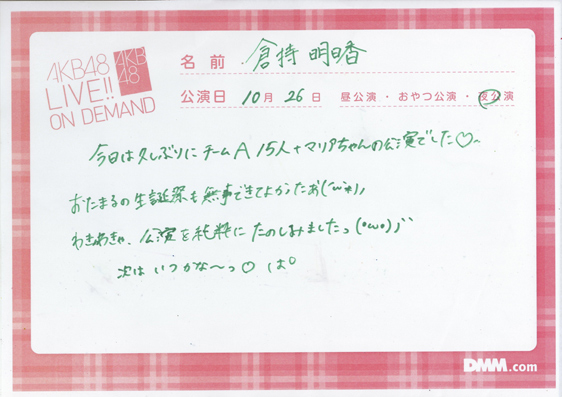 AKB48
LIVE!!
ON DEMAND
AKB
48
名前 倉持明日香
公演日 10月26日 昼公演・おやつ公演・夜公演
今日は久しぶりにチームA15人+マリアちゃんの公演でした♡~
おたまるの生誕祭も無事できてよかったお(´ω`*)ノ
わきあきゃ、公演を純粋にたのしみましたっ(•ω•)ノ"
次はいつかな〜っ♡ ぱ°
DMM.com